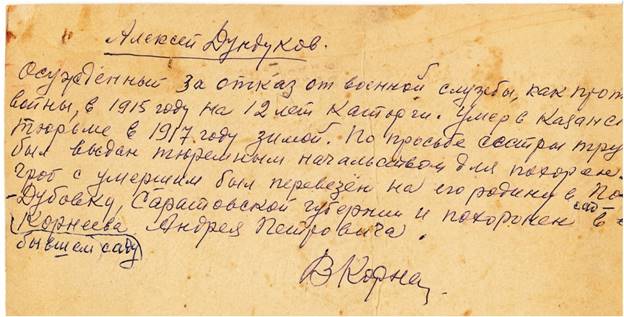 Алексей Дундуков.
Осужденный за отказ от военной службы, как прот
войны, в 1915 году на 12 лет каторги. Умер в Казанс
тюрьме в 1917 году зимой. По просьбе сестры тру
был выдан тюремным начальством для похорон.
Гроб с умершим был перевезён на его родину в По
-Дубовку, Саратовской губернии и похоронен в
Корнеева Андрея Петровича.
бывшем саду
В Корне